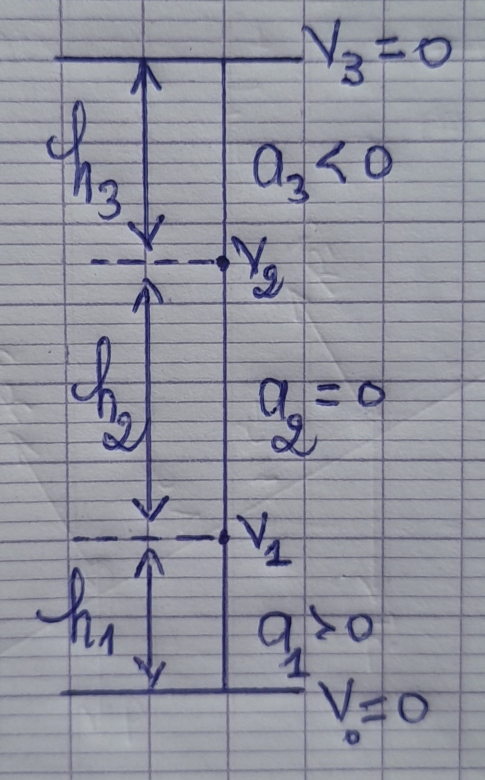 V₃ = 0
h₃
a₃ < 0
V₂
h₂
a₂ = 0
V₁
h₁
a₁ > 0
V₀ = 0